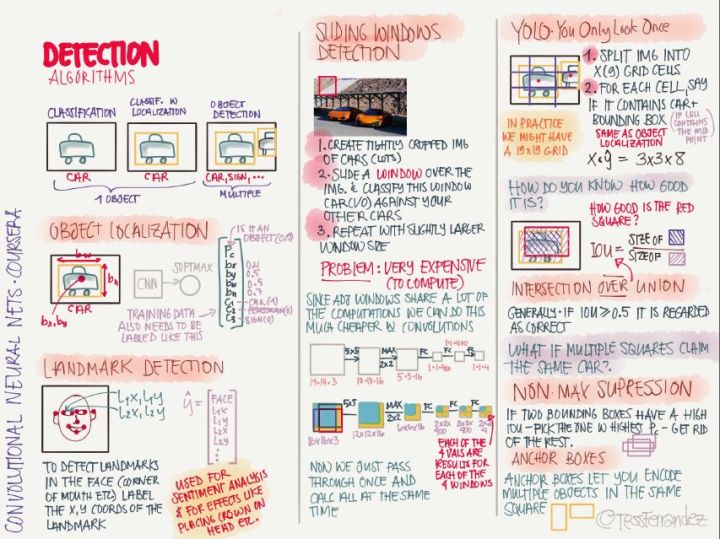 CONVOLUTIONAL NEURAL NETS · COURSERA
DETECTION
ALGORITHMS
CLASSIFICATION
CLASSIF. W
LOCALIZATION
OBJECT
DETECTION
CAR
CAR
CAR, SIGN, ...
1 OBJECT
MULTIPLE
OBJECT LOCALIZATION
IS IT AN
OBJECT (0,1)
bw
bh
bx, by
CAR
CNN
SOFTMAX
Pc
bx
by
bh
bw
C1
C2
C3
0.5
0.5
0.7
CAR (1)
PEDESTRIAN (0)
SIGN (0)
TRAINING DATA
ALSO NEEDS TO BE
LABELED LIKE THIS
LANDMARK DETECTION
L1X, L1Y
L2X, L2Y
ŷ =
FACE
L1X
L1Y
L2X
L2Y
⋮
TO DETECT LANDMARKS
IN THE FACE (CORNER
OF MOUTH ETC) LABEL
THE X,Y COORDS OF THE
LANDMARK
USED FOR
SENTIMENT ANALYSIS
& FOR EFFECTS LIKE
PLACING CROWN ON
HEAD ETC.
SLIDING WINDOWS
DETECTION
1. CREATE TIGHTLY CROPPED IMG
OF CARS (LOTS)
2. SLIDE A WINDOW OVER THE
IMG. & CLASSIFY THIS WINDOW
CAR (1/0) AGAINST YOUR
OTHER CARS
3. REPEAT WITH SLIGHTLY LARGER
WINDOW SIZE
PROBLEM: VERY EXPENSIVE
(TO COMPUTE)
SINCE ADJ WINDOWS SHARE A LOT
OF THE COMPUTATIONS WE CAN DO THIS
MUCH CHEAPER W CONVOLUTIONS
5×5
MAX
2×2
FC
FC
14×14×3
10×10×16
5×5×16
1×1×400
1×1×400
1×1×4
5×5
MAX
2×2
FC
FC
FC
16×16×3
12×12×16
6×6×16
2×2×
400
2×2×
400
2×2×
4
EACH OF THE
4 VALS ARE
RESULTS FOR
EACH OF THE
4 WINDOWS
NOW WE JUST PASS
THROUGH ONCE AND
CALC ALL AT THE SAME
TIME
YOLO · You Only Look Once
1. SPLIT IMG INTO
X(9) GRID CELLS
2. FOR EACH CELL, SAY
IF IT CONTAINS CAR +
BOUNDING BOX (IF CELL
CONTAINS
THE MID
POINT)
SAME AS OBJECT
LOCALIZATION
IN PRACTICE
WE MIGHT HAVE
A 19×19 GRID
= 3×3×8
HOW DO YOU KNOW HOW GOOD
IT IS?
HOW GOOD IS THE RED
SQUARE?
IOU =
SIZE OF
SIZE OF
INTERSECTION OVER UNION
GENERALLY · IF IOU ≥ 0.5 IT IS REGARDED
AS CORRECT
WHAT IF MULTIPLE SQUARES CLAIM
THE SAME CAR?
NON-MAX SUPRESSION
IF TWO BOUNDING BOXES HAVE A HIGH
IOU - PICK THE ONE W HIGHEST Pc - GET RID
OF THE REST.
ANCHOR BOXES
ANCHOR BOXES LET YOU ENCODE
MULTIPLE OBJECTS IN THE SAME
SQUARE
@TessFerrandez